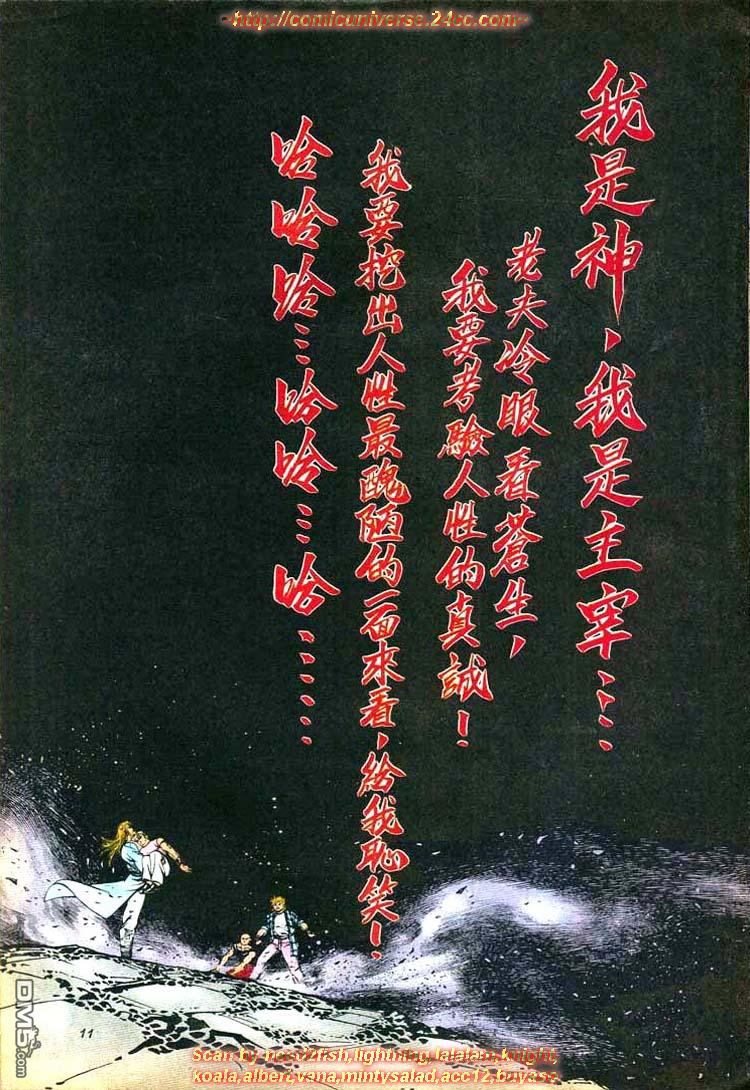 ~http://comicuniverse.24cc.com~
我是神，我是主宰……
老夫冷眼看蒼生，
我要考驗人性的真誠！
我要挖出人性最醜陋的一面來看，給我恥笑！
哈哈哈…哈哈…哈……
11
DM5.com
Scan by neso2fish,lightning,lalalala,knight,
koala,albert,vana,mintysalad,acc12,buyasa